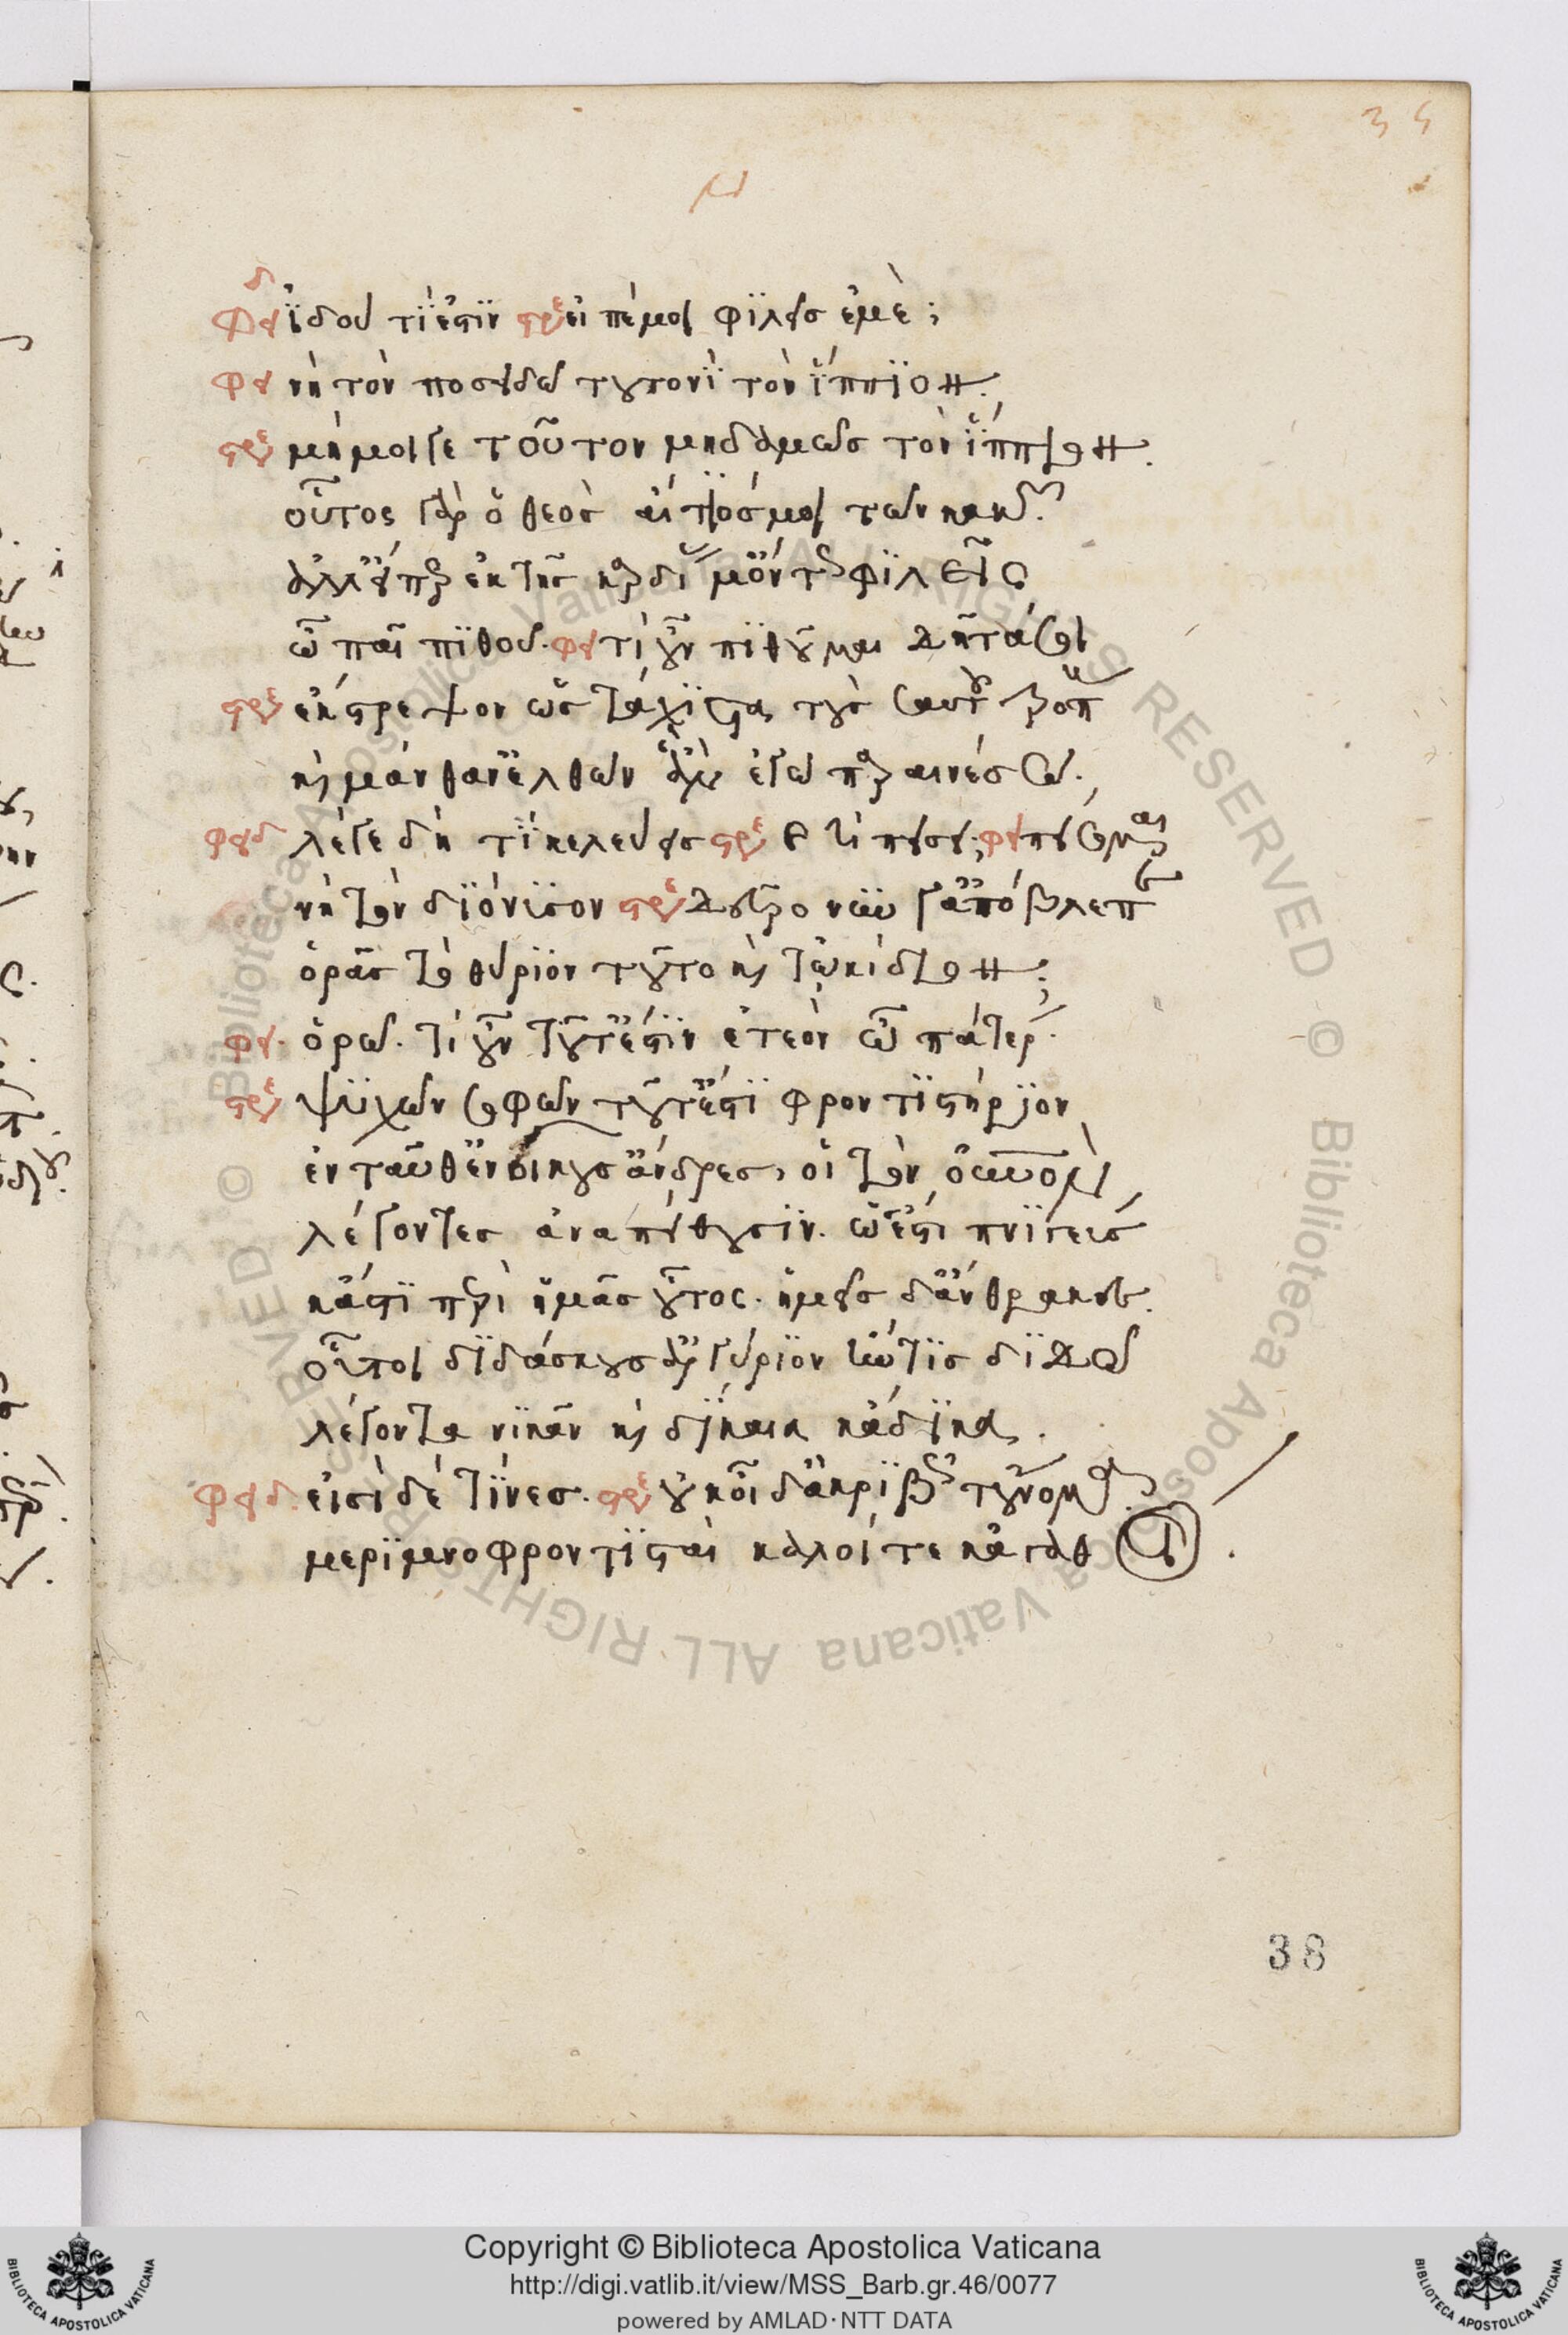 35
μ
Φειδ ἰδού τί ἐστιν στρε εἰπέ μοι φιλεῖς ἐμέ;
Φει νὴ τὸν ποσειδῶ τουτονὶ τὸν ἵππιον.
στρε μή μοι γε τοῦτον μηδαμῶς τὸν ἵππιον.
οὗτος γὰρ ὁ θεὸς αἴτιός μοι τῶν κακῶν.
ἀλλ' εἴπερ ἐκ τῆς καρδίας μ' ὄντως φιλεῖς
ὦ παῖ πιθοῦ. φει τί οὖν πίθωμαι δῆτά σοι
στρε ἔκστρεψον ὡς τάχιστα τοὺς σαυτοῦ τρόπους
καὶ μάνθαν' ἐλθὼν ἃ ἂν ἐγὼ παραινέσω.
φειδ λέγε δὴ τί κελεύεις στρε καί τι πείσει; φει πείσομαι
νὴ τὸν διόνισον στρε δεῦρο νῦν γ' ἀπόβλεπε
ὁρᾶς τὸ θύριον τοῦτο καὶ τὠκίδιον;
φει. ὁρῶ. τί οὖν τοῦτ' ἐστὶν ἐτεὸν ὦ πάτερ.
στρε ψυχῶν σοφῶν τοῦτ' ἐστὶ φροντιστήριον
ἐνταῦθ' ἐνοικοῦσ' ἄνδρες, οἳ τὸν οὐρανὸν
λέγοντες ἀναπείθουσιν. ὡς ἔστι πνιγεὺς
κἄστι περὶ ἡμᾶς οὗτος. ἡμεῖς δ' ἄνθρακες.
οὗτοι διδάσκουσ' ἀργύριον ἤν τις διδῷ
λέγοντα νικᾶν καὶ δίκαια κἄδικα.
φειδ. εἰσὶ δὲ τίνες. στρε οὐκ οἶδ' ἀκριβῶς τοὔνομα.
μεριμνοφροντισταὶ καλοί τε κἀγαθοί.
38
Copyright © Biblioteca Apostolica Vaticana
http://digi.vatlib.it/view/MSS_Barb.gr.46/0077
powered by AMLAD · NTT DATA